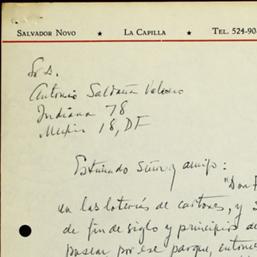 SALVADOR NOVO ★ LA CAPILLA ★ TEL. 524-90
Sr D.
Antonio Saldaña
Indiana 78
México 18, DF
Estimado Señor y amigo:
"Don
en las loterías de cartones, y
de fin de siglo y principios de
pasear por ese parque, entonces